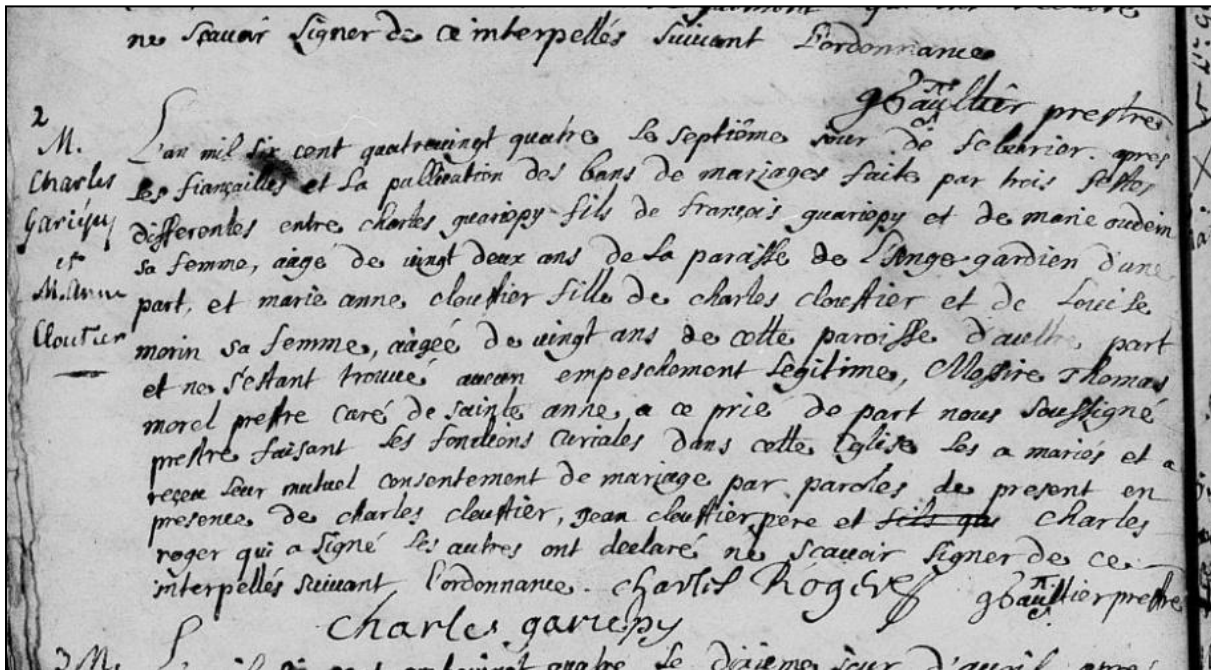 ne scavoir signer de ce interpellés suivant l'ordonnance
gGaultier prestre
2
M.
Charles
Gariépy
et
M. Anne
Cloutier
L'an mil six cent quatrevingt quatre le septième jour de febvrier apres
les fiançailles et la publication des bans de mariages faite par trois festes
differentes entre charles guariepy fils de françois guariepy et de marie oudein
sa femme, aagé de vingt deux ans de la paroisse de l'Ange gardien d'une
part, et marie anne clouttier fille de charles clouttier et de Louise
morin sa femme, aagée de vingt ans de cette paroisse d'aultre part
et ne s'estant trouvé aucun empeschement legitime, Messire Thomas
morel prestre curé de sainte anne a ce prié de part nous soussigné
prestre faisant les fonctions curiales dans cette Eglise les a mariés et a
reçeu leur mutuel consentement de mariage par paroles de present en
presence de charles clouttier, jean clouttier pere et fils charles
roger qui a signé les autres ont declaré ne scavoir signer de ce
interpellés suivant l'ordonnance. charles Roger
gGaultier prestre
charles gariepy
3 M. quatre le dixieme jour d'avril